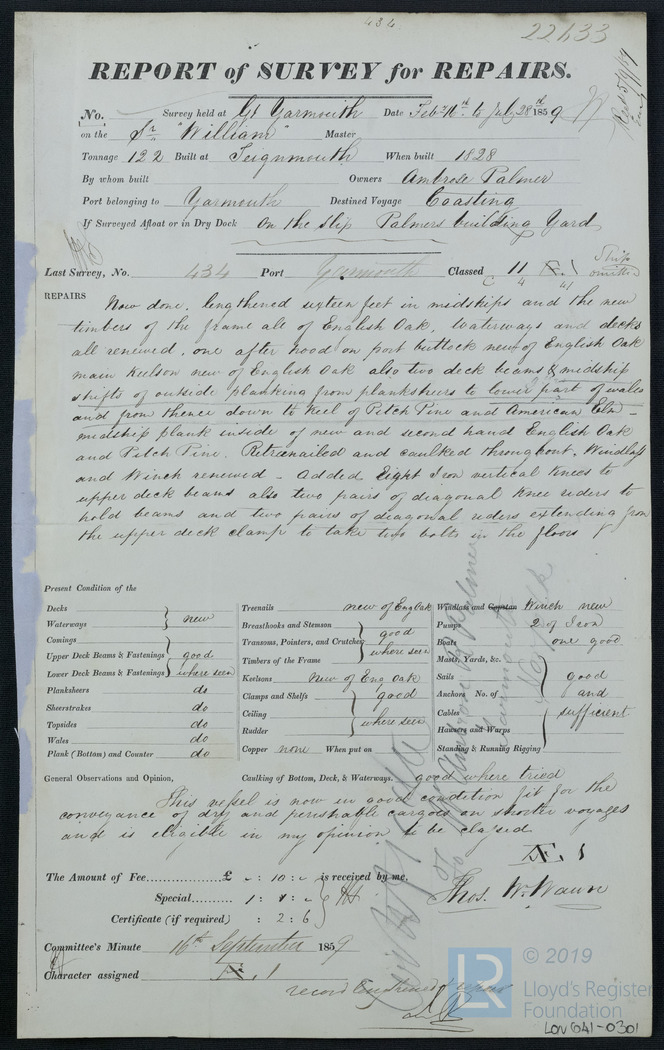 434
22633
REPORT of SURVEY for REPAIRS.
No. Survey held at Gt Yarmouth Date Feby 16th to July 28th 1859
on the Sr "William" Master
Tonnage 122 Built at Teignmouth When built 1828
By whom built Owners Ambrose Palmer
Port belonging to Yarmouth Destined Voyage Coasting
If Surveyed Afloat or in Dry Dock On the Slip Palmers building Yard
Last Survey, No. 434 Port Yarmouth Classed
REPAIRS Now done, lengthened sixteen feet in midships and the new
timbers of the frame all of English Oak, Waterways and decks
all renewed, one after hood on port buttock new of English Oak
main Keelson new of English Oak also two deck beams & midship
shifts of outside planking from planksheers to lower part of wales
and from thence down to keel of Pitch Pine and American Elm -
midship plank inside of new and second hand English Oak
and Pitch Pine. Retreenailed and caulked throughout, Windlass
and Winch renewed - Added Eight Iron vertical Knees to
upper deck beams also two pairs of diagonal knee riders to
hold beams and two pairs of diagonal riders extending from
the upper deck clamp to take two bolts in the floors
Present Condition of the
Decks
Waterways new
Comings
Upper Deck Beams & Fastenings good
Lower Deck Beams & Fastenings where seen
Planksheers do
Sheerstrakes do
Topsides do
Wales do
Plank (Bottom) and Counter do
Treenails new of Eng Oak
Breasthooks and Stemson good
Transoms, Pointers, and Crutches
Timbers of the Frame where seen
Keelsons New of Eng Oak
Clamps and Shelfs good
Ceiling
Rudder where seen
Copper none When put on
Windlass and Capstan Winch new
Pumps 2 of Iron
Boats one good
Masts, Yards, &c.
Sails good
Anchors No. of and
Cables sufficient
Hawsers and Warps
Standing & Running Rigging
General Observations and Opinion, Caulking of Bottom, Deck, & Waterways. good where tried
This vessel is now in good condition fit for the
conveyance of dry and perishable cargoes on shorter voyages
and is eligible in my opinion to be classed
Æ. 1
The Amount of Fee £ - : 10 : - is received by me,
Special 1 : 1 : -
Certificate (if required) : 2 : 6
Thos. W. Wawn
Committee's Minute 16th September 1859
Character assigned Æ. 1
© 2019
LR
Lloyd's Register
Foundation
LON641-0301